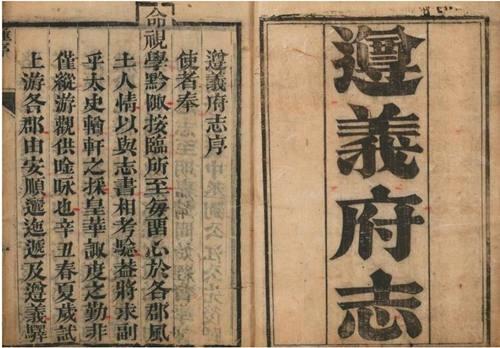 遵義府志
遵義府志序
使者奉
命視學黔陬按臨所至每留心於各郡風
土人情以與志書相考驗葢將求副
乎太史輶軒之採皇華諏度之勤非
僅縱游觀供唫咏也辛丑春夏歲試
上游各郡由安順邐迤遞及遵義驛